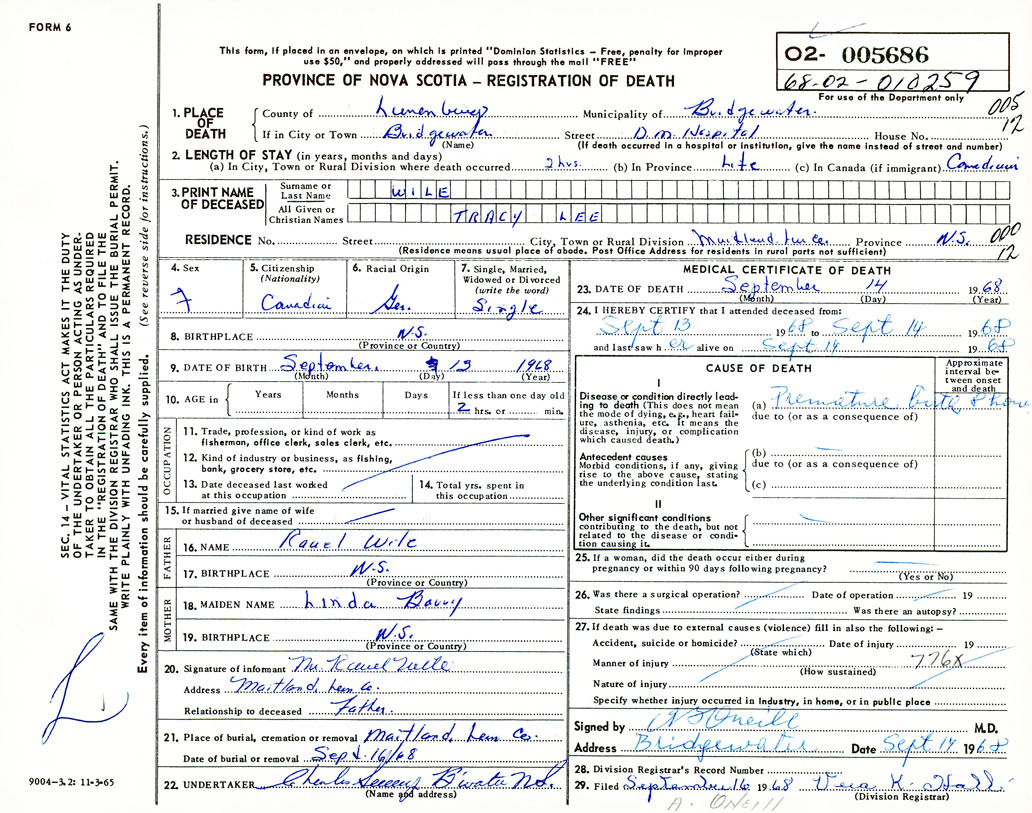 FORM 6
This form, if placed in an envelope, on which is printed "Dominion Statistics – Free, penalty for improper
use $50," and properly addressed will pass through the mail "FREE"
PROVINCE OF NOVA SCOTIA – REGISTRATION OF DEATH
02- 005686
68-02-010259
For use of the Department only
005
12
1. PLACE OF DEATH
County of Lunenburg Municipality of Bridgewater.
If in City or Town Bridgewater Street D.M. Hospital House No.
(Name) (If death occurred in a hospital or institution, give the name instead of street and number)
2. LENGTH OF STAY (in years, months and days)
(a) In City, Town or Rural Division where death occurred 2 hrs. (b) In Province Life (c) In Canada (if immigrant)
3. PRINT NAME OF DECEASED
Surname or Last Name WILE
All Given or Christian Names TRACY LEE
RESIDENCE No. Street City, Town or Rural Division Maitland Lun Co. Province N.S.
000
12
(Residence means usual place of abode. Post Office Address for residents in rural parts not sufficient)
4. Sex F
5. Citizenship (Nationality) Canadian
6. Racial Origin Ger.
7. Single, Married, Widowed or Divorced (write the word) Single
8. BIRTHPLACE N.S.
(Province or Country)
9. DATE OF BIRTH September 13 1968
(Month) (Day) (Year)
10. AGE in Years Months Days If less than one day old
2 hrs. or min.
OCCUPATION
11. Trade, profession, or kind of work as
fisherman, office clerk, sales clerk, etc.
12. Kind of industry or business, as fishing,
bank, grocery store, etc.
13. Date deceased last worked
at this occupation
14. Total yrs. spent in
this occupation
15. If married give name of wife
or husband of deceased
FATHER
16. NAME Wile
17. BIRTHPLACE N.S.
(Province or Country)
MOTHER
18. MAIDEN NAME Linda
19. BIRTHPLACE N.S.
(Province or Country)
20. Signature of informant Mr. Wile
Address Maitland, Lun Co.
Relationship to deceased Father.
21. Place of burial, cremation or removal Maitland, Lun Co.
Date of burial or removal Sept. 16/68
22. UNDERTAKER Charles B'water N.S.
(Name and address)
MEDICAL CERTIFICATE OF DEATH
23. DATE OF DEATH September 14 1968
(Month) (Day) (Year)
24. I HEREBY CERTIFY that I attended deceased from:
Sept 13 1968 to Sept 14 1968
and last saw her alive on Sept 14 1968
CAUSE OF DEATH
Approximate interval between onset and death
I
Disease or condition directly lead-
ing to death (This does not mean
the mode of dying, e.g., heart fail-
ure, asthenia, etc. It means the
disease, injury, or complication
which caused death.)
(a) Premature
due to (or as a consequence of)
Antecedent causes
Morbid conditions, if any, giving
rise to the above cause, stating
the underlying condition last.
(b)
due to (or as a consequence of)
(c)
II
Other significant conditions
contributing to the death, but not
related to the disease or condi-
tion causing it.
25. If a woman, did the death occur either during
pregnancy or within 90 days following pregnancy?
(Yes or No)
26. Was there a surgical operation? Date of operation 19
State findings Was there an autopsy?
27. If death was due to external causes (violence) fill in also the following: –
Accident, suicide or homicide? Date of injury 19
(State which)
Manner of injury 776X
(How sustained)
Nature of injury
Specify whether injury occurred in industry, in home, or in public place
Signed by O'Neill M.D.
Address Bridgewater Date Sept 14 1968
28. Division Registrar's Record Number
29. Filed September 16 1968 Vera K. Hall
(Division Registrar)
A. ONEILL
SEC. 14 – VITAL STATISTICS ACT MAKES IT THE DUTY
OF THE UNDERTAKER OR PERSON ACTING AS UNDER-
TAKER TO OBTAIN ALL THE PARTICULARS REQUIRED
IN THE "REGISTRATION OF DEATH" AND TO FILE THE
SAME WITH THE DIVISION REGISTRAR WHO SHALL ISSUE THE BURIAL PERMIT.
WRITE PLAINLY WITH UNFADING INK. THIS IS A PERMANENT RECORD.
Every item of information should be carefully supplied. (See reverse side for instructions.)
9004-3.2: 11-3-65